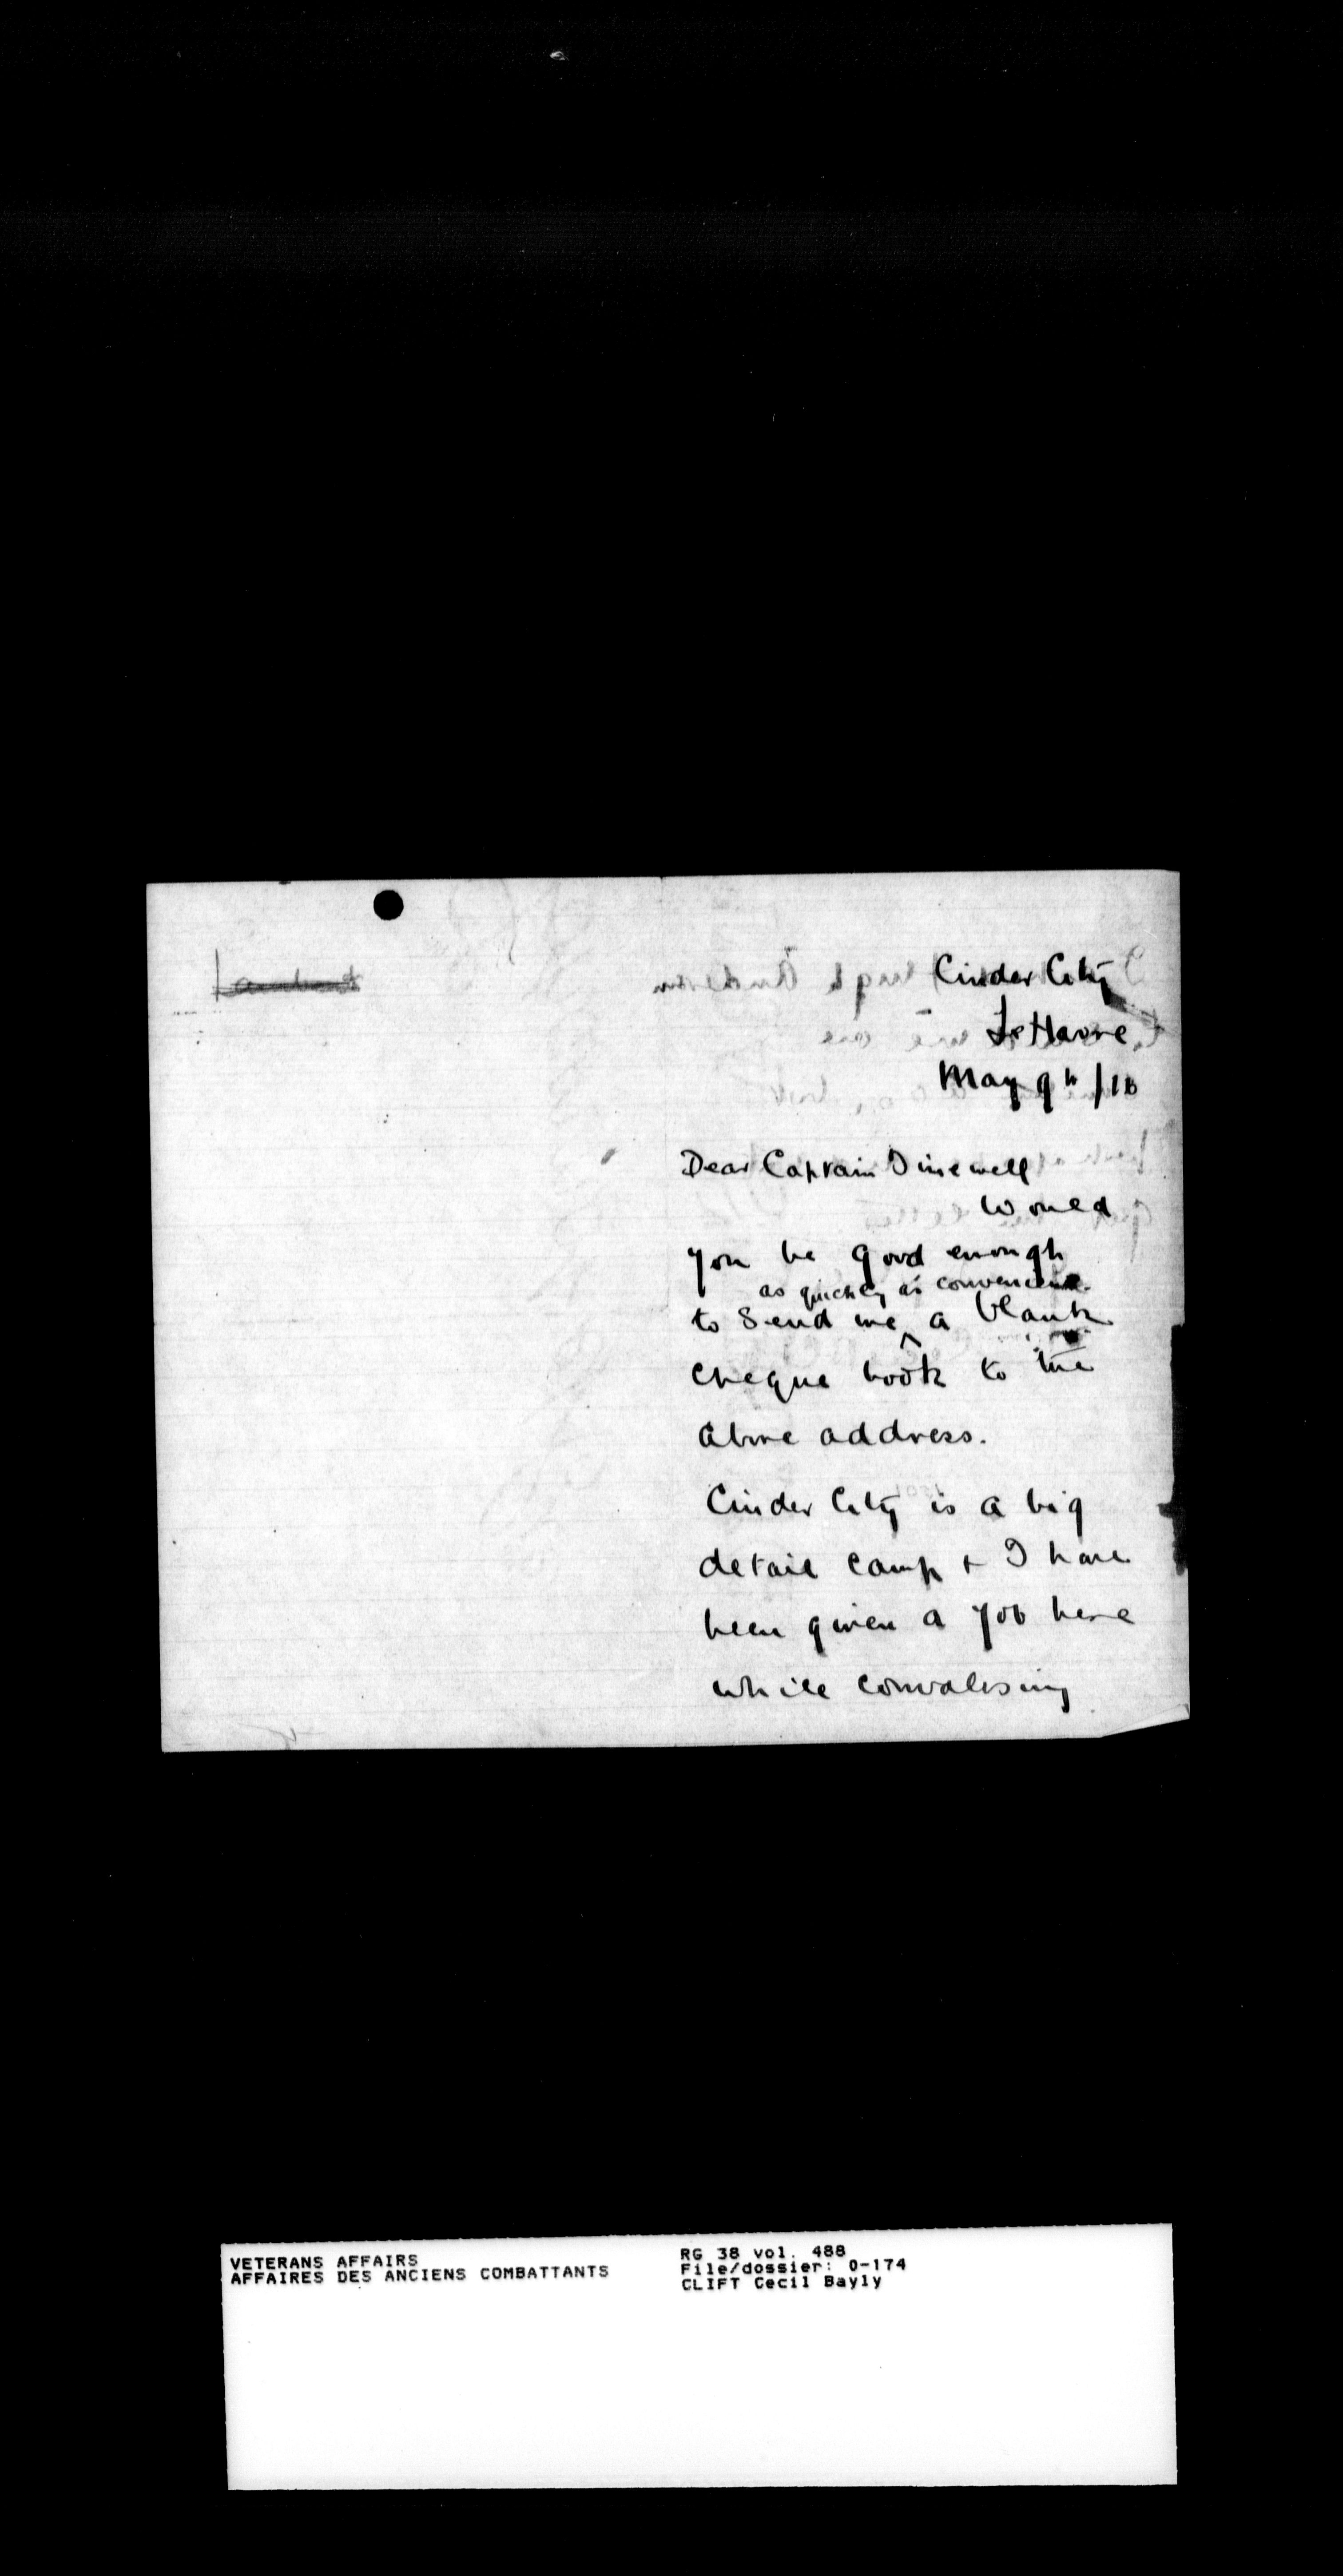 Cinder City
Le Havre
May 9th /18
Dear Captain Dinewell
Would
you be good enough
as quickly as convenient
to send me ^ a blank
cheque book to the
above address.
Cinder City is a big
detail camp + I have
been given a job here
while convalesing
VETERANS AFFAIRS
AFFAIRES DES ANCIENS COMBATTANTS
RG 38 vol. 488
File/dossier: 0-174
CLIFT Cecil Bayly